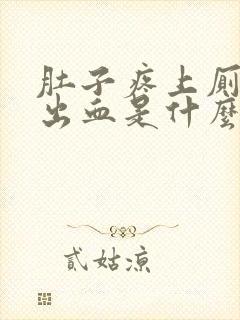 肚子疼上厕
出血是什麽
貳姑凉